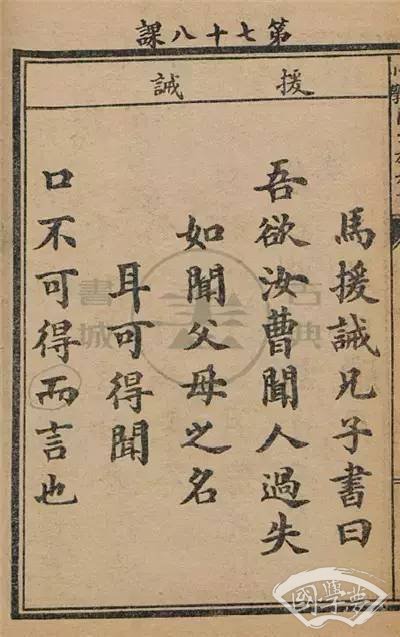 第七十八課
援誡
馬援誡兄子書曰
吾欲汝曹聞人過失
如聞父母之名
耳可得聞
口不可得而言也
古典書城
國學夢